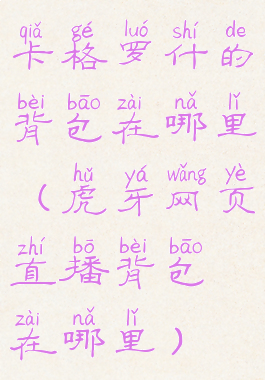 qiǎ gé luó shí de
卡格罗什的
bèi bāo zài nǎ lǐ
背包在哪里
hǔ yá wǎng yè
（虎牙网页
zhí bō bèi bāo
直播背包
zài nǎ lǐ
在哪里）